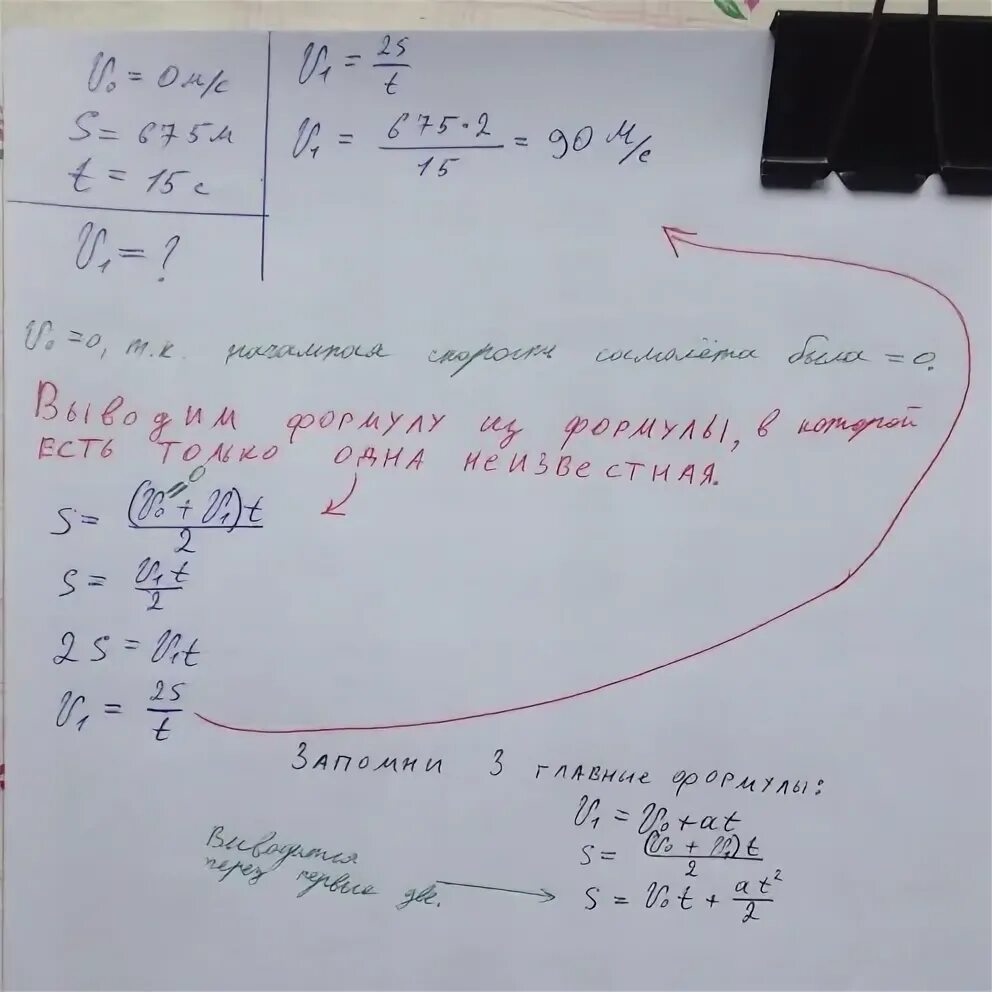 V₀ = 0 м/с
S = 675 м
t = 15 с
V₁ = ?
V₁ = 2S/t
V₁ = 675·2/15 = 90 м/с
V₀ = 0, т.к. начальная скорость самолёта была = 0.
Выводим формулу из формулы, в которой
есть только одна неизвестная.
0
S = (V₀ + V₁)t/2
S = V₁t/2
2S = V₁t
V₁ = 2S/t
Запомни 3 главные формулы:
V₁ = V₀ + at
S = (V₀ + V₁)t/2
Выводится
через первые две.
S = V₀t + at²/2